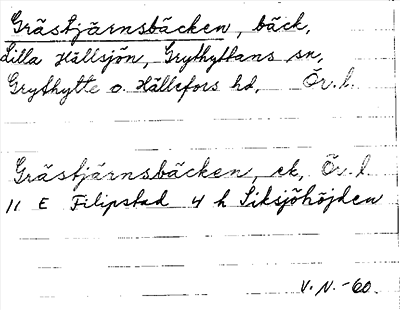 Grästjärnsbäcken, bäck,
Lilla Hällsjön, Grythyttans sn,
Grythytte o. Hällefors hd, Ör. l.
Grästjärnsbäcken, ek, Ör. l
11 E Filipstad 4 h Siksjöhöjden
V. N. -60.